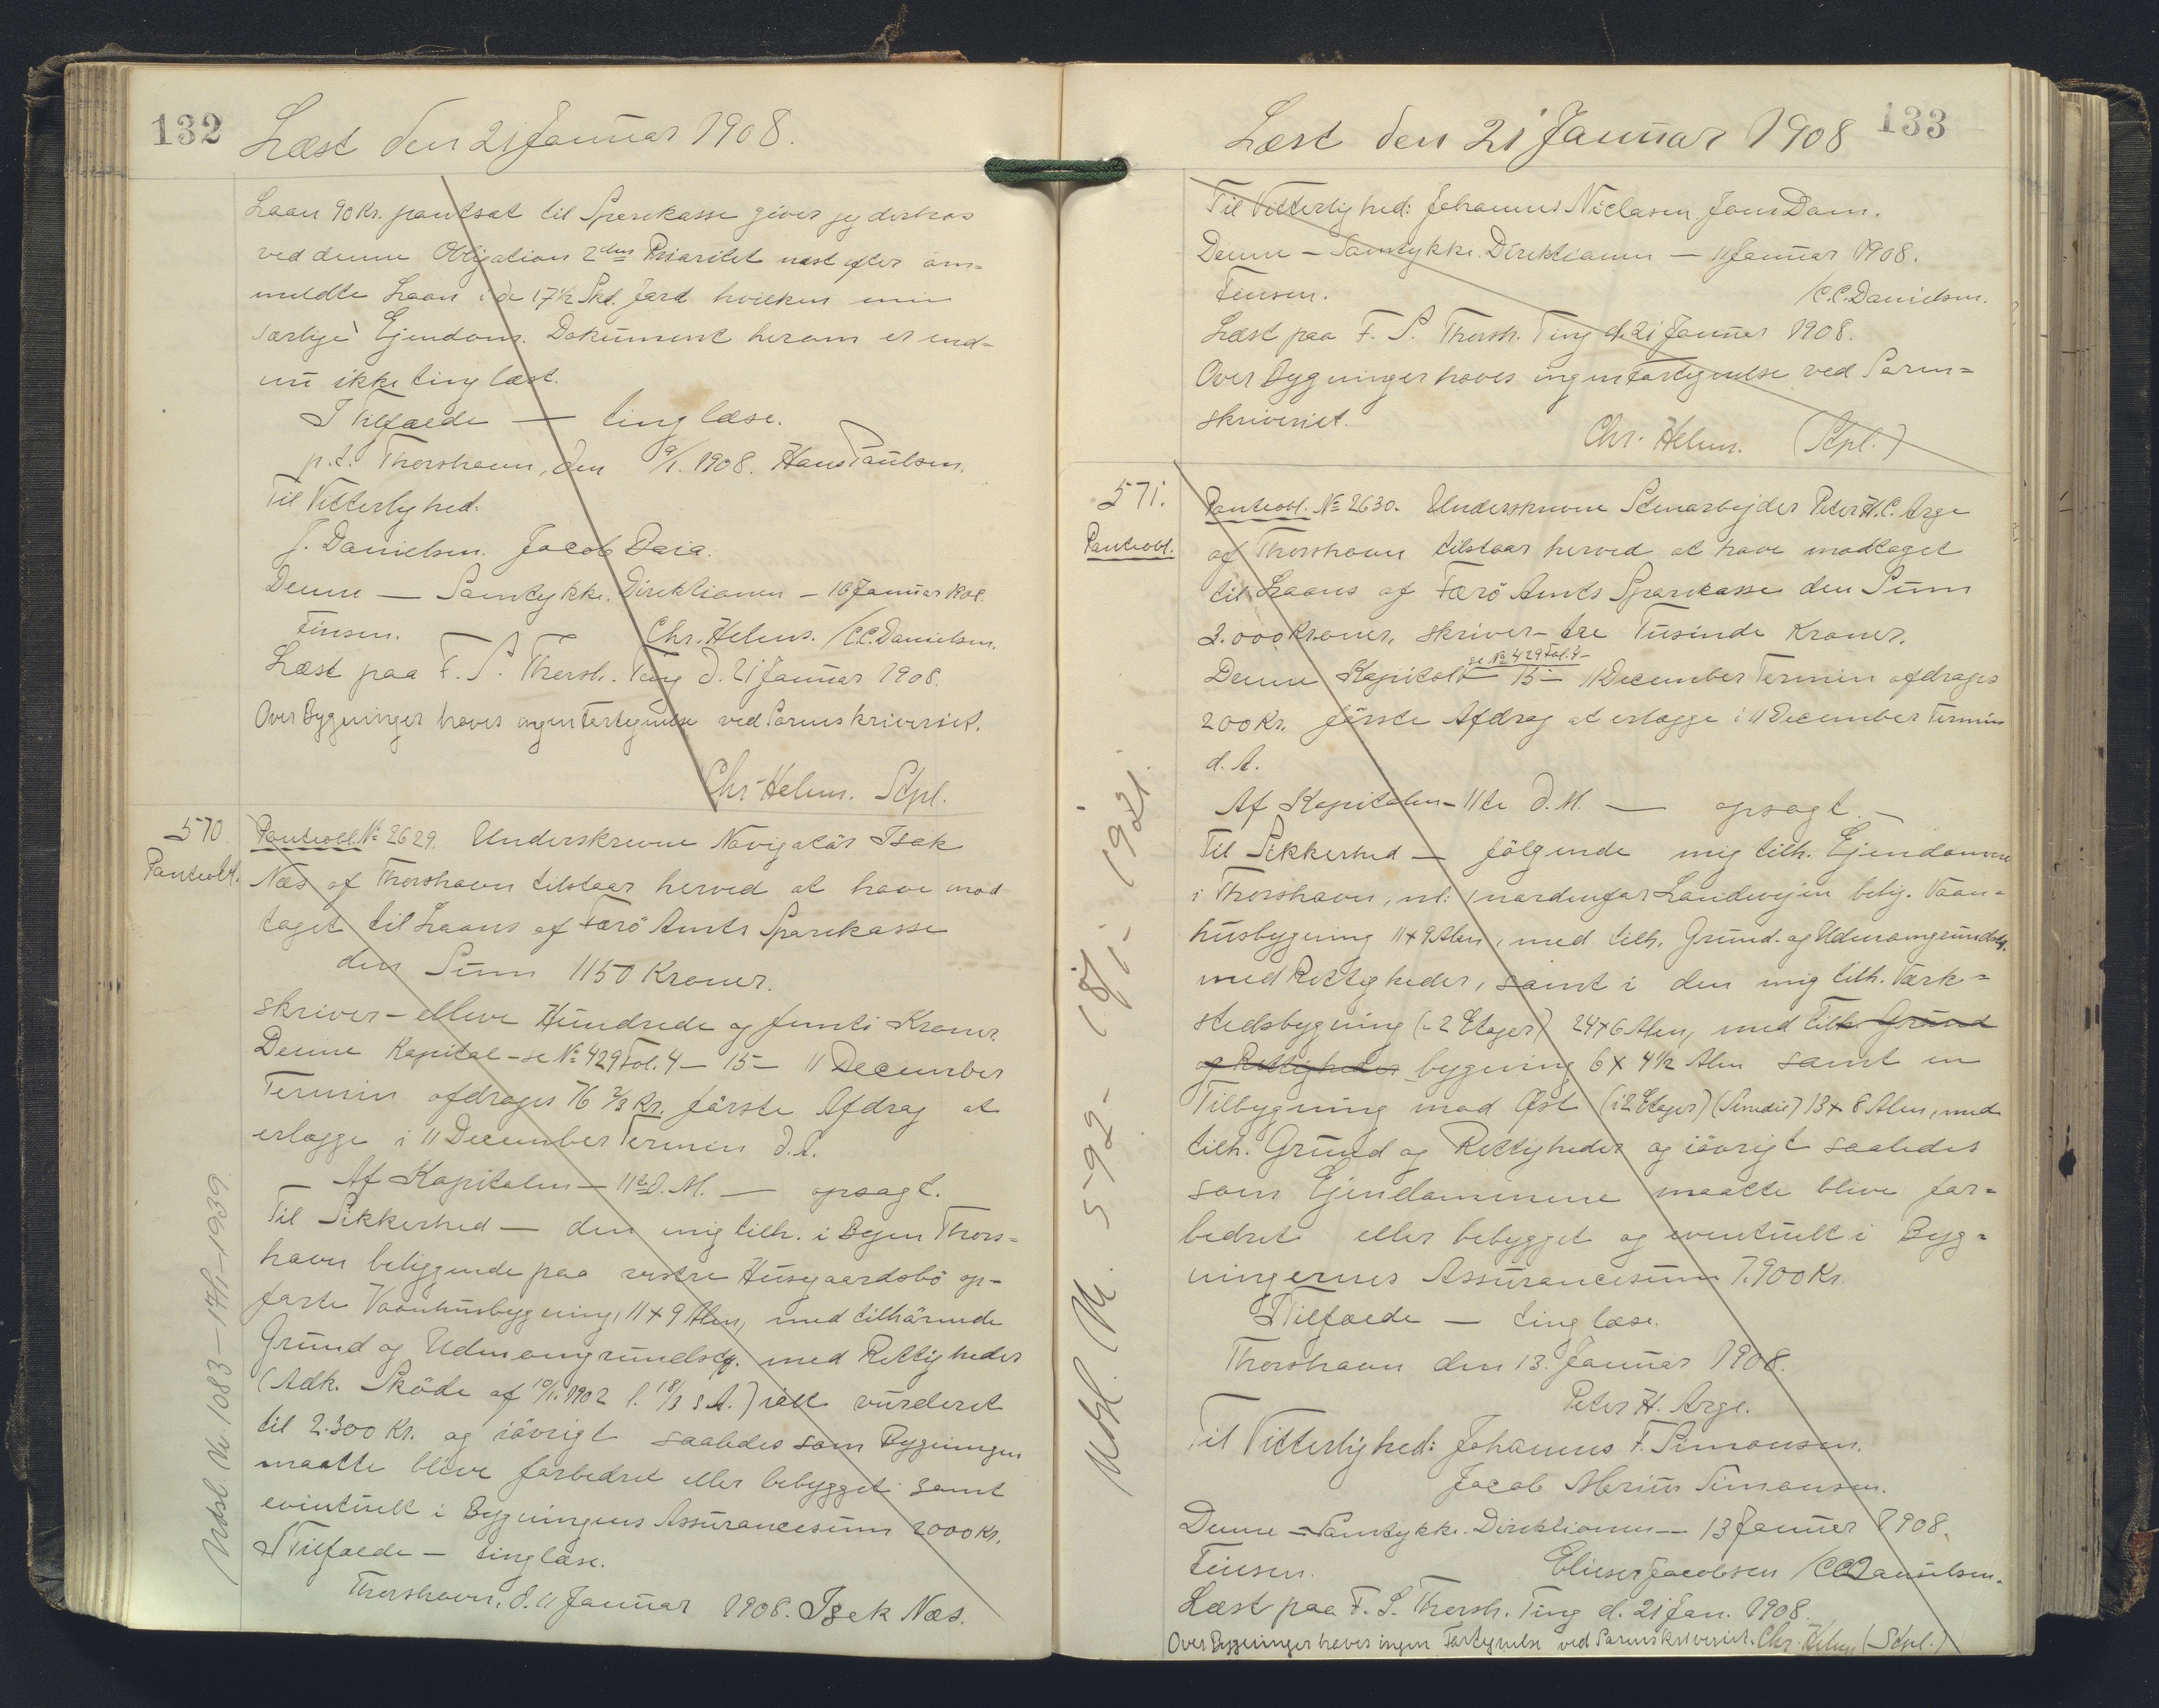 132
Læst den 21 Januar 1908.
Laan 90 Kr. pantsat til Sparekasse giver jeg derhos
ved denne Obligation 2den Prioritet næst efter om-
meldte Laan i de 17½ Skd. Jord hvilken min
særlige Ejendom. Dokument herom er end-
nu ikke tinglæst.
I Tilfælde — tinglæse.
p.t. Thorshavn, den 9/1. 1908. Hans Paulsen.
Til Vitterlighed.
J. Danielsen. Jacob Daia.
Denne — Samtykke. Direktionen — 16 Januar 1908.
Finsen. Chr. Helms. /C.C. Danielsen.
Læst paa F. S. Thorsh. Ting d. 21 Januar 1908.
Over Bygninger haves ingen Fortegnelse ved Sorenskriveriet.
Chr. Helms. Stpl.
570.
Panteobl.
Panteobl. № 2629. Underskrevne Navigatör Isak
Næs af Thorshavn tilstaar herved at have mod
taget til Laans af Færö Amts Sparekasse
den Sum 1150 Kroner.
skriver – elleve Hundrede og femti Kroner.
Denne Kapital – se № 429 Fol. 4 – 15 – 11 December
Termin afdrages 76 2/3 Kr. förste Afdrag at
erlægge i 11 December Termin d. A.
Af Kapitalen – 11te d. M. — opsagt.
Til Sikkerhed — den mig tilh. i Byen Thors-
havn beliggende paa vestre Husegaardsbö op-
förte Vaanhusbygning 11 x 9 Alen, med tilhörende
Grund og Udenomgrundstk. med Rettigheder
(Adk. Sköde af 10/1. 1902 l. 18/3 s. A.) ialt vurderet
til 2.300 Kr. og iövrigt saaledes som Bygningen
maatte blive forbedret eller bebygget samt
eventuelt i Bygningens Assurancesum 2000 Kr.
I Tilfælde — tinglæse.
Thorshavn, d. 11 Januar 1908. Isak Næs.
Udsl. № 1083 – 17/1 – 1939
133
Læst den 21 Januar 1908
Til Vitterlighed: Johannes Niclasen. Jens Dam.
Denne – Samtykke. Direktionen — 11 Januar 1908.
Finsen. /C.C. Danielsen.
Læst paa F. S. Thorsh. Ting d. 21 Januar 1908.
Over Bygninger haves ingen Fortegnelse ved Soren-
skriveriet.
Chr. Helms. (Stpl.)
571.
Panteobl.
Panteobl. № 2630. Underskrevne Stenarbejder Peter H. C. Arge
af Thorshavn tilstaar herved at have modtaget
til Laans af Færö Amts Sparekasse den Sum
3.000 Kroner, skriver – tre Tusinde Kroner.
se № 429 Fol. 4 –
Denne Kapital – 15 – 11 December Termin afdrages
200 Kr. förste Afdrag at erlægge i 11 December Termin
d. A.
Af Kapitalen – 11te d. M. — opsagt. –
Til Sikkerhed — fölgende mig tilh. Ejendomme
i Thorshavn, nl: 1 nordenfor Landevejen belig. Vaan-
husbygning 11 x 9 Alen, med tilh. Grund- og Udenomgrundstk.
med Rettigheder, samt i den mig tilh. Værk-
stedsbygning (– 2 Etager) 24 x 6 Alen, med tilh. Grund
og Rettigheder bygning 6 x 4½ Alen samt en
Tilbygning mod Öst (i 2 Etager) (Smedie) 13 x 8 Alen, med
tilh. Grund og Rettigheder og iövrigt saaledes
som Ejendommene maatte blive for-
bedret eller bebygget og eventuelt i Byg-
ningernes Assurancesum 7.900 Kr.
I Tilfælde — tinglæse.
Thorshavn den 13. Januar 1908.
Peter H. Arge.
Til Vitterlighed: Johannes F. Simonsen.
Jacob Marius Simonsen.
Denne – Samtykke. Direktionen — 13 Januar 1908.
Finsen. Elieser Jacobsen /C.C. Danielsen.
Læst paa F. S. Thorsh. Ting d. 21 Jan. 1908.
Over Bygninger haves ingen Fortegnelse ved Sorenskriveriet. Chr. Helms (Stpl.)
Udsl. № 5-92- 18/1- 1921.